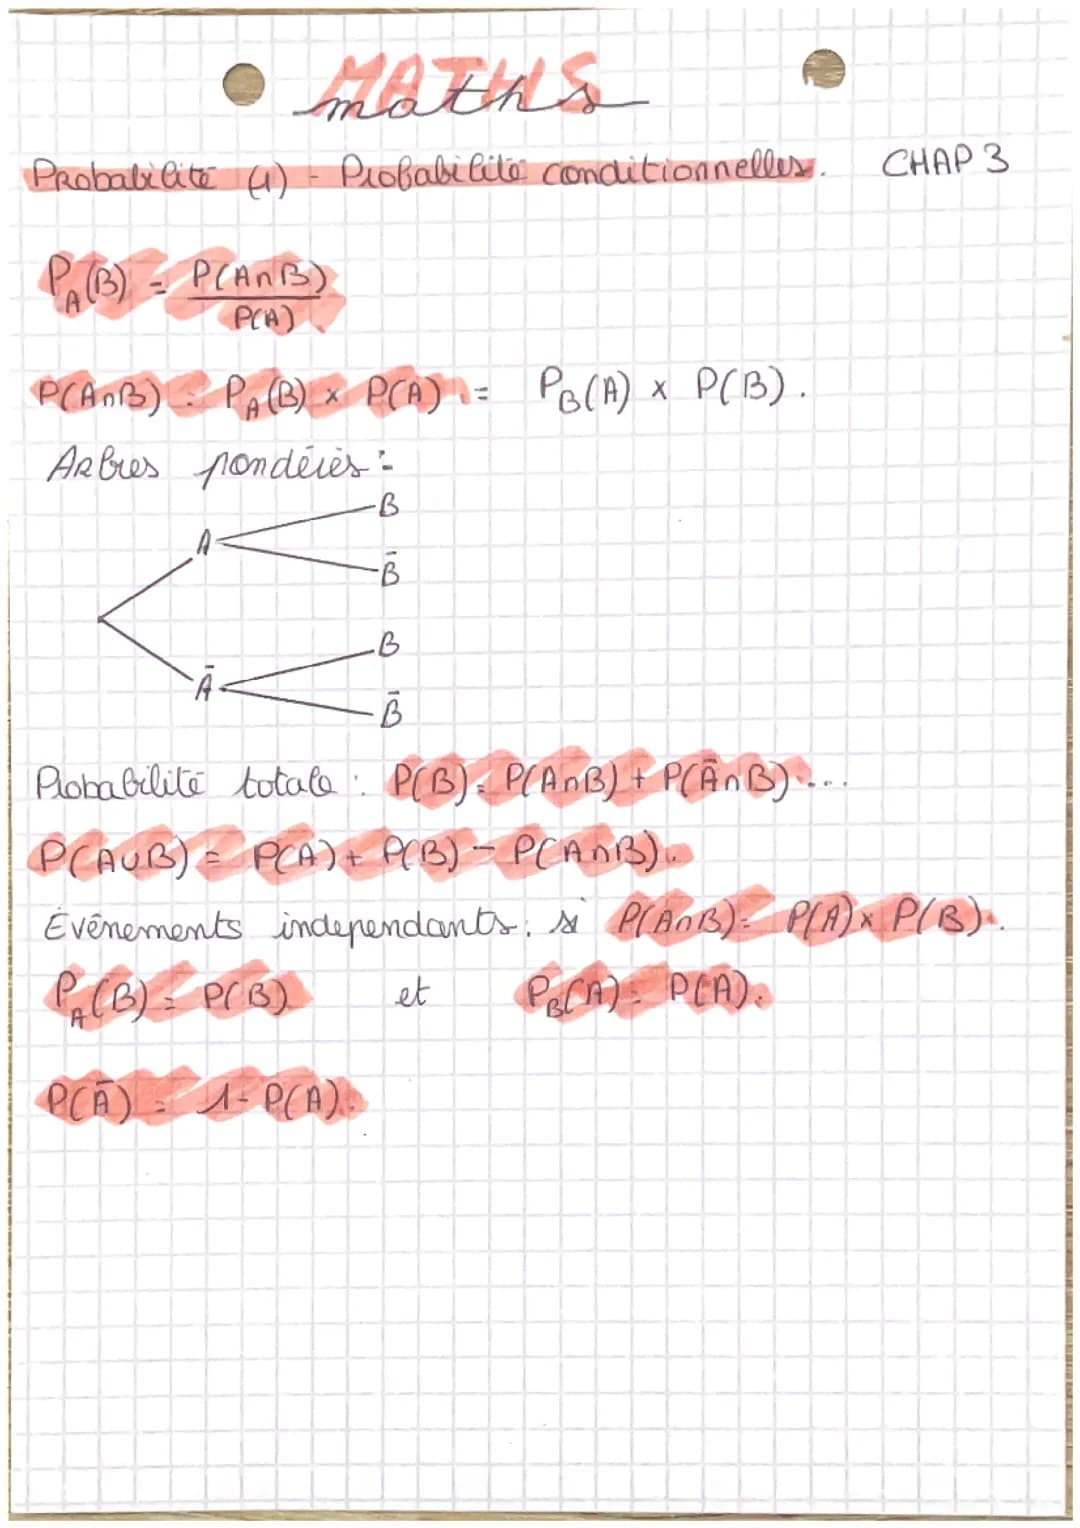 MATHS
maths
Probabilité (1) - Probabilité conditionnelles. CHAP 3
P_A(B) = P(A∩B) / P(A)
P(A∩B) = P_A(B) × P(A) = P_B(A) × P(B).
Arbres pondérés :
B
A
B̄
B
Ā
B̄
Probabilité totale : P(B) = P(A∩B) + P(Ā∩B) ...
P(A∪B) = P(A) + P(B) - P(A∩B).
Événements independants : si P(A∩B) = P(A) × P(B).
P_A(B) = P(B) et P_B(A) = P(A).
P(Ā) = 1 - P(A).